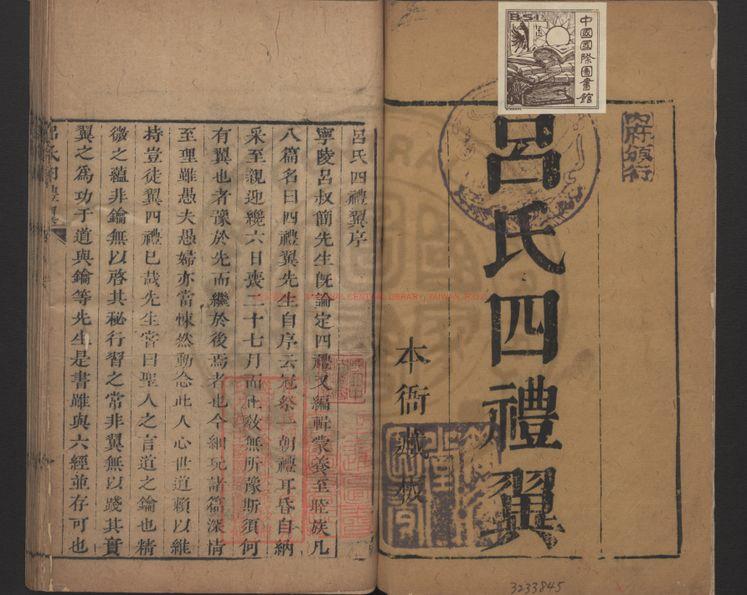 中國國際圖書館
呂氏四禮翼
本衙藏板
呂氏四禮翼序
寧陵呂叔簡先生既論定四禮又編輯蒙養至睦族凡
八篇名曰四禮翼先生自序云冠祭一朝禮耳昏自納
采至親迎纔六日喪二十七月而止故無所豫斯須何
有翼也者豫於先而繼於後焉者也今細玩諸篇深情
至理雖愚夫愚婦亦當悚然動念此人心世道賴以維
持豈徒翼四禮已哉先生嘗曰聖人之言道之鑰也精
微之蘊非鑰無以啓其秘行習之常非翼無以踐其實
翼之爲功于道與鑰等先生是書雖與六經並存可也
NATIONAL CENTRAL LIBRARY, TAIWAN, R.O.C.
3233845